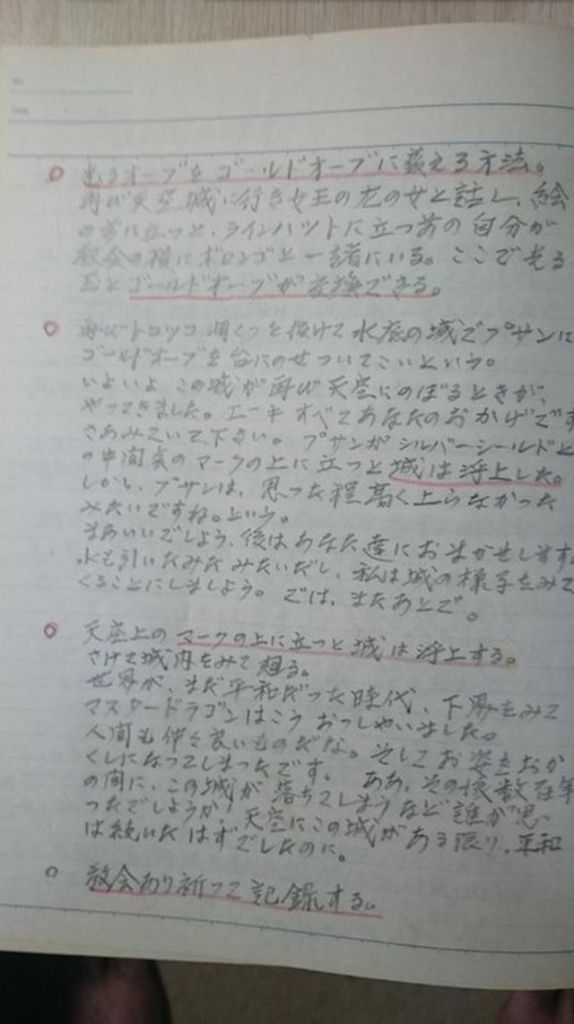 光るオーブをゴールドオーブに変える方法。
再び天空城に行き女王の左の女と話し、絵
の前に立つと、ラインハットに立つ前の自分が
教会の横にボロンゴと一諸にいる。ここで光る
玉とゴールドオーブが交換できる。
再びトロッコ洞くつを抜けて水底の城でプサンに
ゴールドオーブを台にのせついてこいという。
いよいよこの城が再び天空にのぼるときが、
やってきました。エーキすべてあなたのおかげです
さあみていて下さい。プサンがシルバーシールドと
の中間点のマークの上に立つと城は浮上した。
しかし、プサンは、思った程高く上らなかった
みたいですね。という。
まあいいでしょう、後はあなた達におまかせします。
水も引いたみたみたいだし、私は城の様子をみて
くることにしましょう。では、またあとで。
天空上のマークの上に立つと城は浮上する。
さけて城内をみて廻る。
世界が、まだ平和だった時代、下界をみて
マスタードラゴンはこうおっしゃいました。
人間も仲々良いものだな。そしてお姿をおか
くしになってしまったです。ああ、その後数百年
の間に、この城が落ちてしまうなど誰が思
ったでしょうか!天空にこの城がある限り、平和
は続いたはずでしたのに。
教会あり祈って記録する。